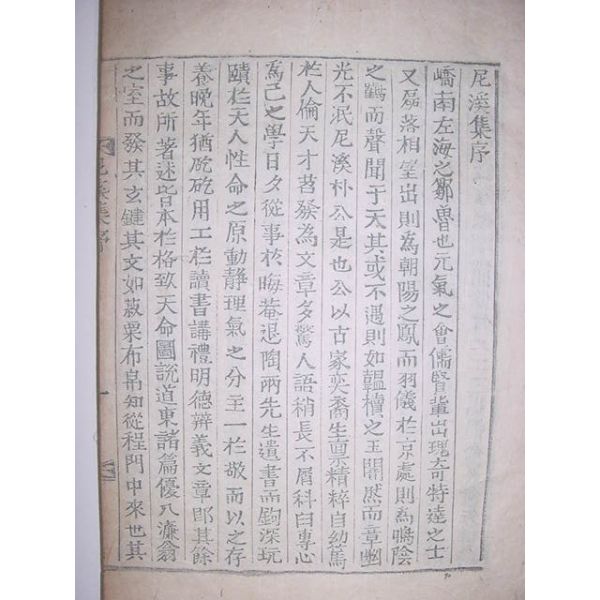 尼溪集序
嶠南左海之鄒魯也元氣之會儒賢輩出瓌奇特達之士
又磊落相望出則為朝陽之鳳而羽儀於京處則為鳴陰
之鶴而聲聞于天其或不遇則如韞櫝之玉闇然而章幽
光不泯尼溪朴公是也公以古家奕裔生稟精粹自幼篤
於人倫天才茗發為文章多驚人語稍長不屑科臼專心
為己之學日夕從事於晦菴退陶兩先生遺書而鉤深玩
賾於天人性命之原動靜理氣之分主一於敬而以之存
養晚年猶矻矻用工於讀書講禮明德辨義文章卽其餘
事故所著述皆本於格致天命圖說道東諸篇優入濂翁
之室而發其玄鍵其文如菽粟布帛知從程門中來也其
尼溪集序
一